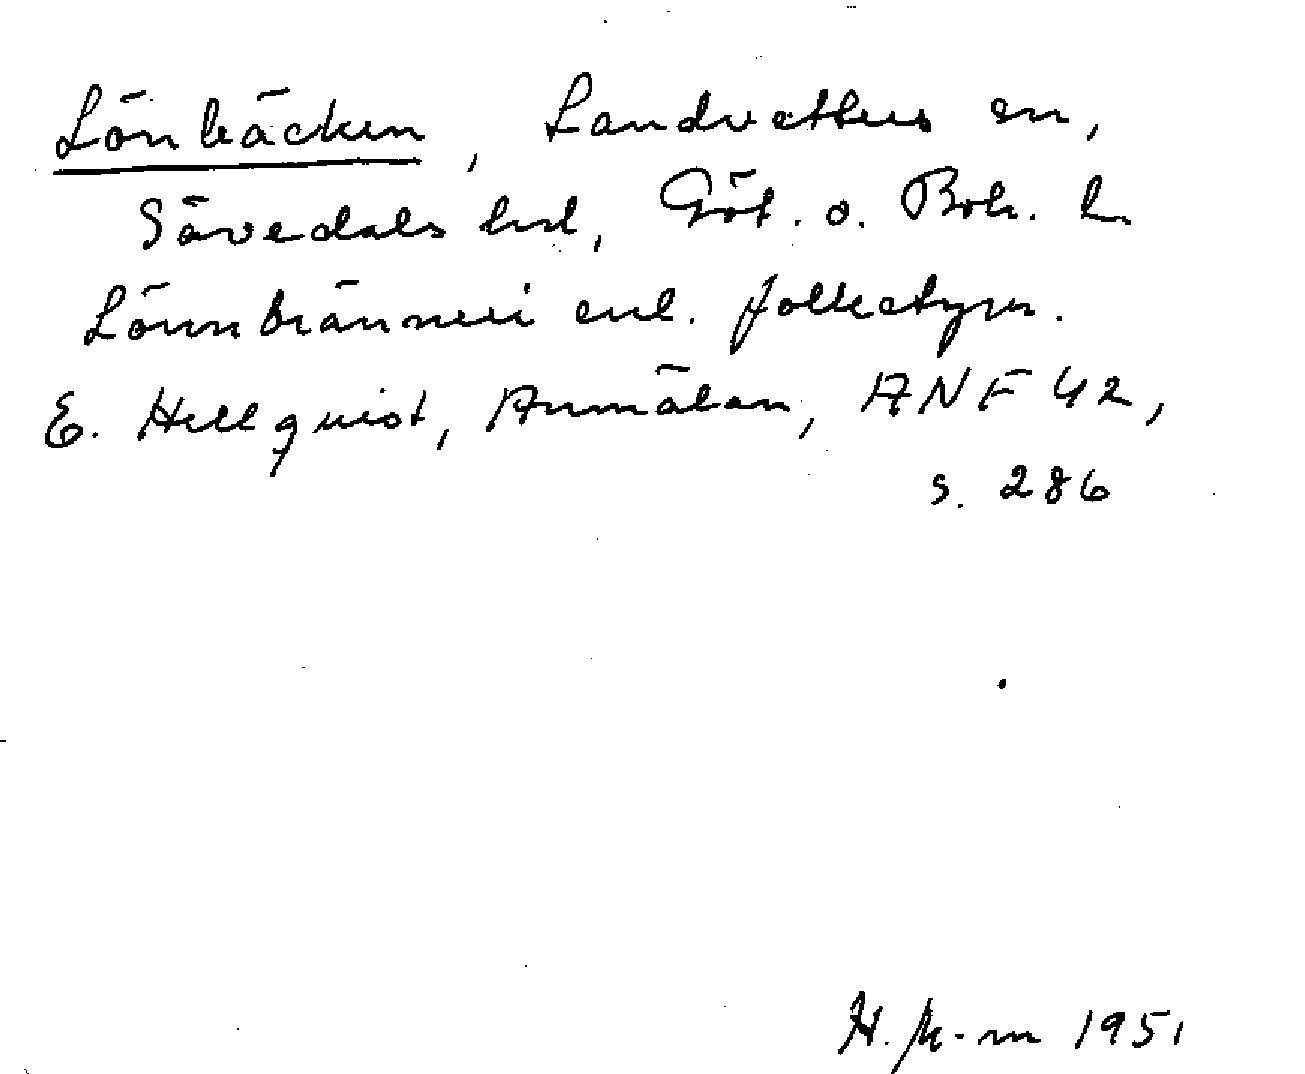 Lönbäcken, Landvetters sn,
Sävedals hd, Göt. o. Boh. l.
Lönnbränneri enl. folketym.
E. Hellquist, Anmälan, ANF 42,
s. 286
H. 1951